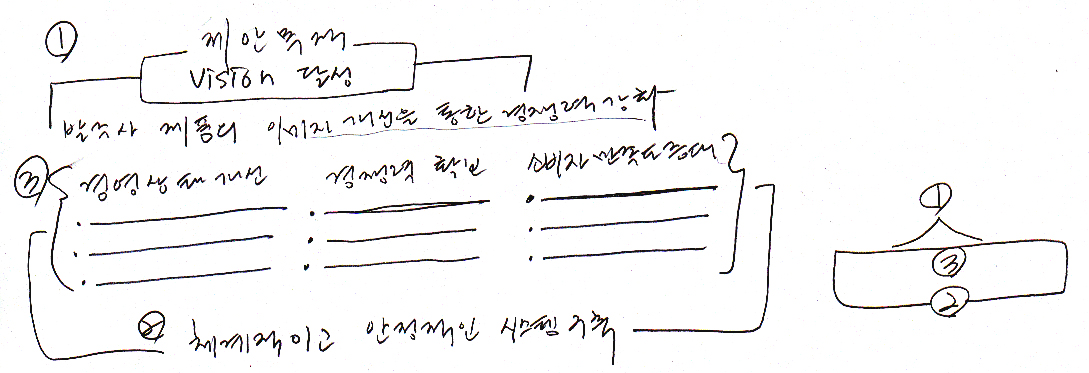 ①
제안목적
Vision 달성
발주사 제품의 이미지 개선을 통한 경쟁력 강화
③ 경영상태 개선 경쟁력 확보 소비자 만족도 증대
② 체계적이고 안정적인 시스템 구축
①
③
②